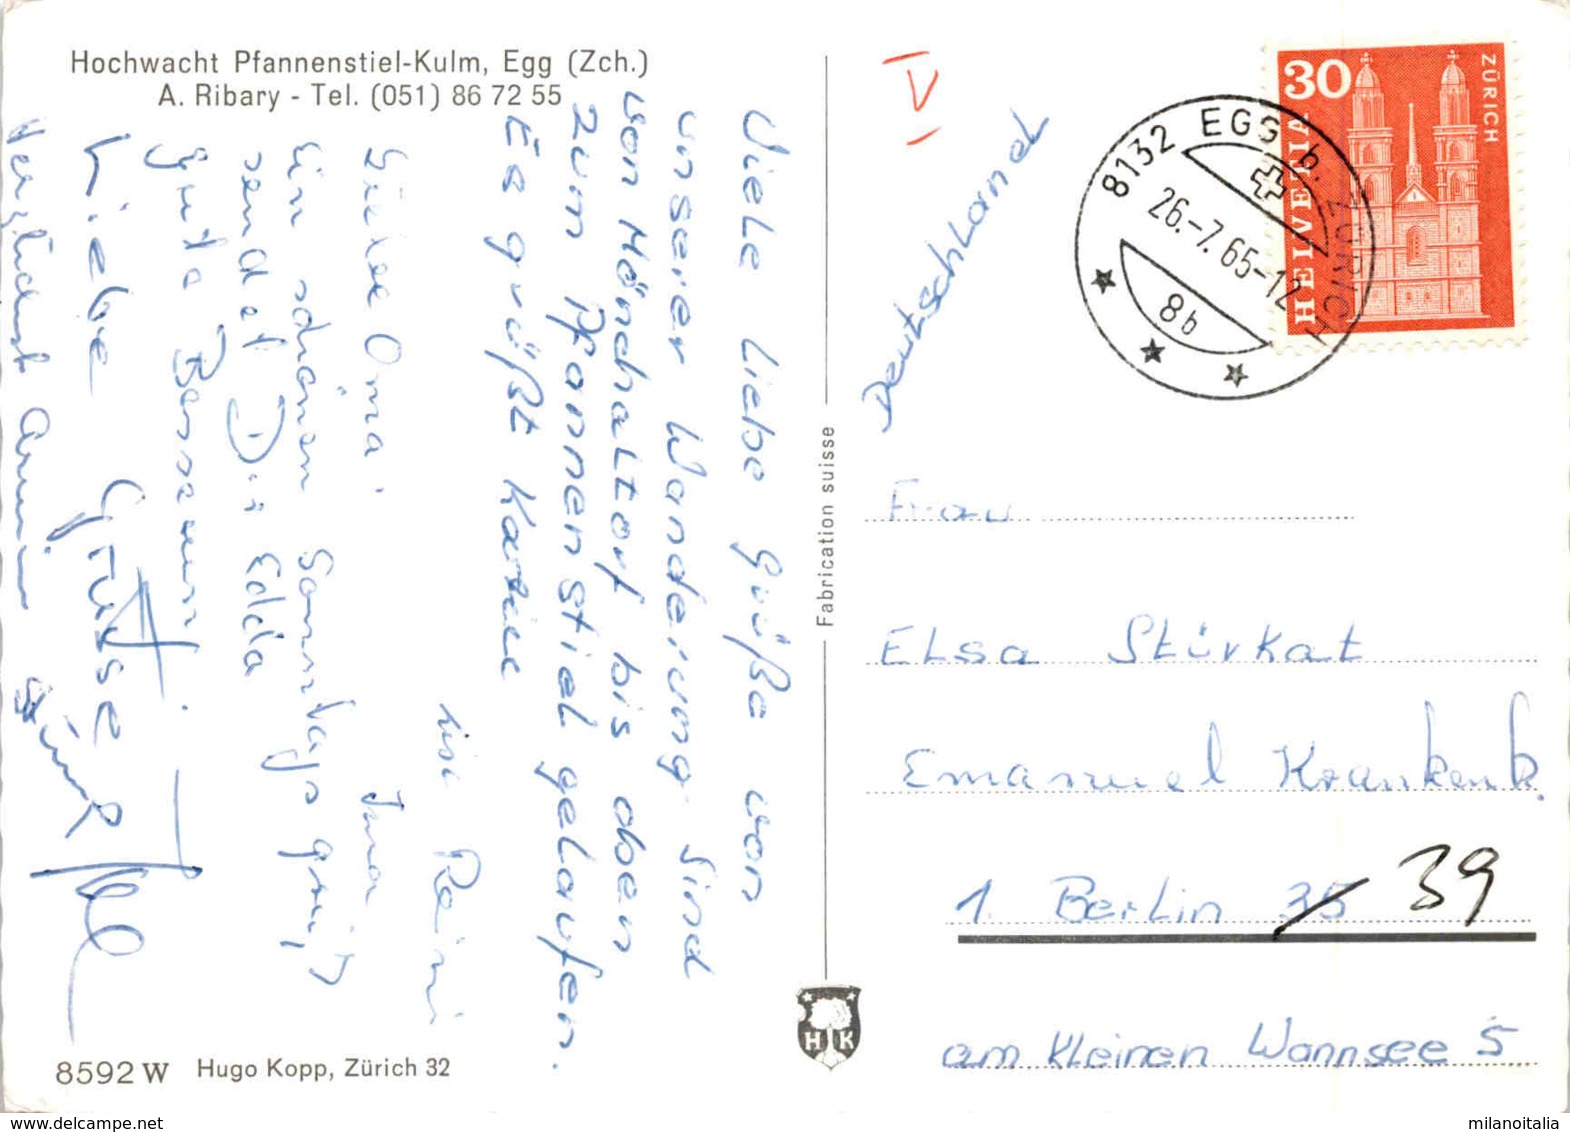 Hochwacht Pfannenstiel-Kulm, Egg (Zch.)
A. Ribary - Tel. (051) 86 72 55
Viele liebe Grüße von
unserer Wanderung. Sind
von Mönchaltorf bis oben
zum Pfannenstiel gelaufen.
Es grüßt
Liebe Oma.
Ein schönen Sonntagsgruß
sendet Dir Edda
Gute Besserung
Liebe Grüsse
Herzlichst
Fabrication suisse
8592 W Hugo Kopp, Zürich 32
H K
V
Deutschland
8132 EGG b. ZÜRICH
26.-7. 65-12
8b
30
HELVETIA
ZÜRICH
Frau
Elsa Stürkat
Emanuel Krankenh.
1. Berlin 35 39
am kleinen Wannsee 5
milanoitalia
www.delcampe.net